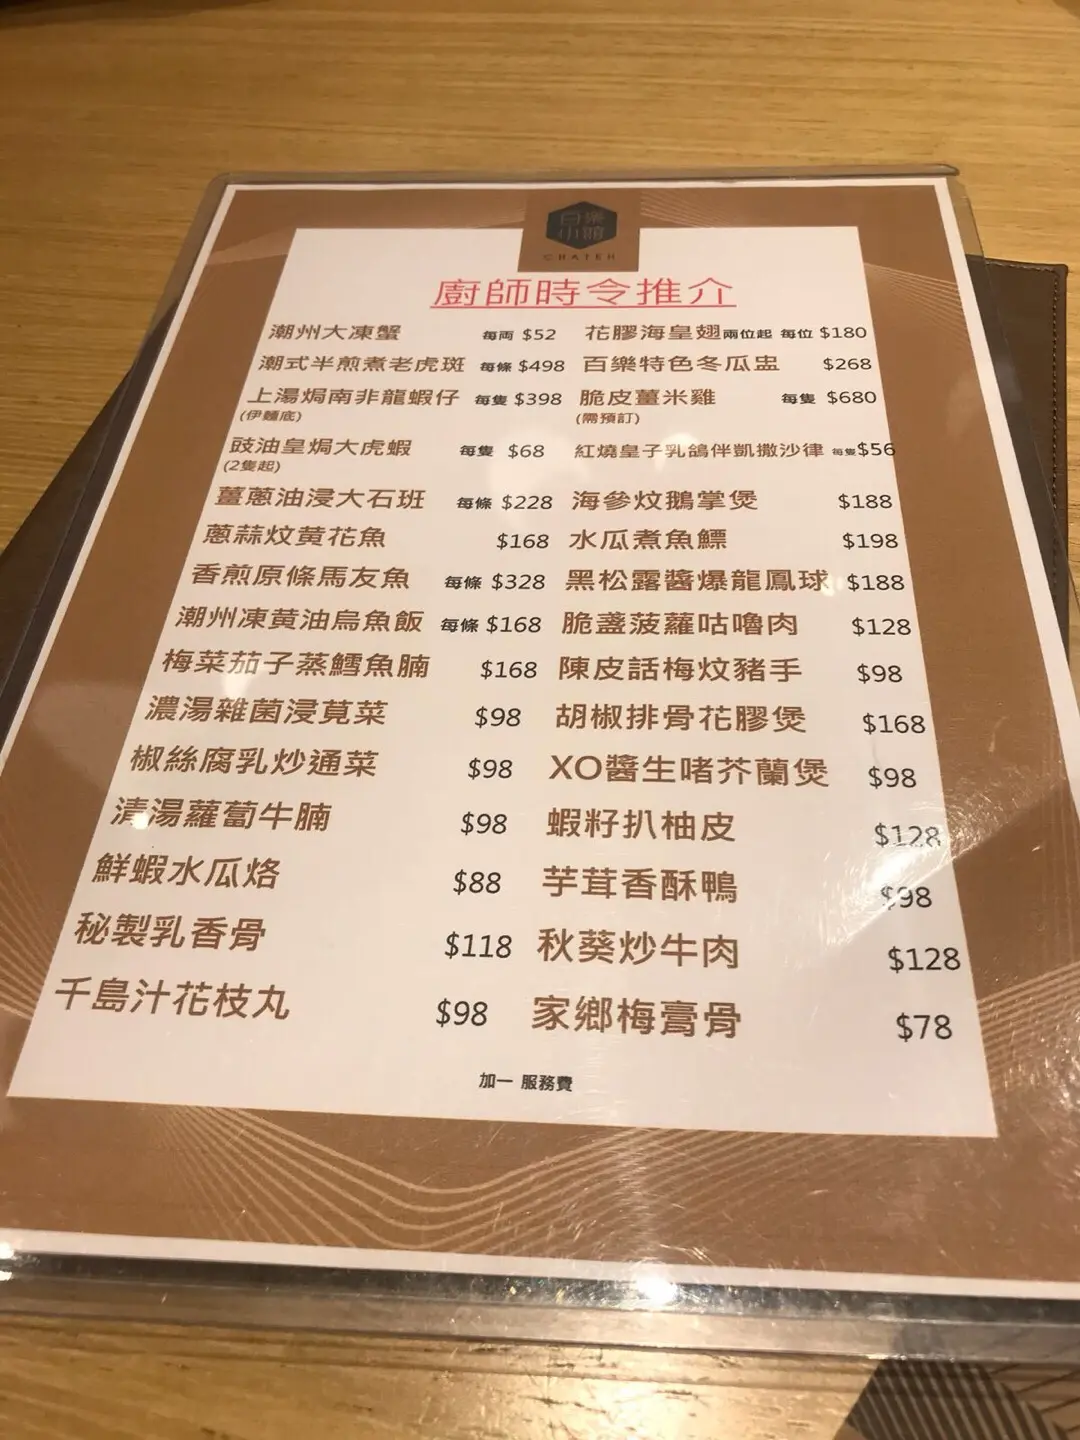 百樂
小館
CHATEH
廚師時令推介
潮州大凍蟹 每両 $52
潮式半煎煮老虎斑 每條 $498
上湯焗南非龍蝦仔 每隻 $398
(伊麵底)
豉油皇焗大虎蝦 每隻 $68
(2隻起)
薑蔥油浸大石斑 每條 $228
蔥蒜炆黄花魚 $168
香煎原條馬友魚 每條 $328
潮州凍黄油烏魚飯 每條 $168
梅菜茄子蒸鱈魚腩 $168
濃湯雜菌浸莧菜 $98
椒絲腐乳炒通菜 $98
清湯蘿蔔牛腩 $98
鮮蝦水瓜烙 $88
秘製乳香骨 $118
千島汁花枝丸 $98
花膠海皇翅兩位起 每位 $180
百樂特色冬瓜盅 $268
脆皮薑米雞 每隻 $680
(需預訂)
紅燒皇子乳鴿伴凱撒沙律 每隻$56
海參炆鵝掌煲 $188
水瓜煮魚鰾 $198
黑松露醬爆龍鳳球 $188
脆盞菠蘿咕嚕肉 $128
陳皮話梅炆豬手 $98
胡椒排骨花膠煲 $168
XO醬生啫芥蘭煲 $98
蝦籽扒柚皮 $128
芋茸香酥鴨 $98
秋葵炒牛肉 $128
家鄉梅膏骨 $78
加一 服務費